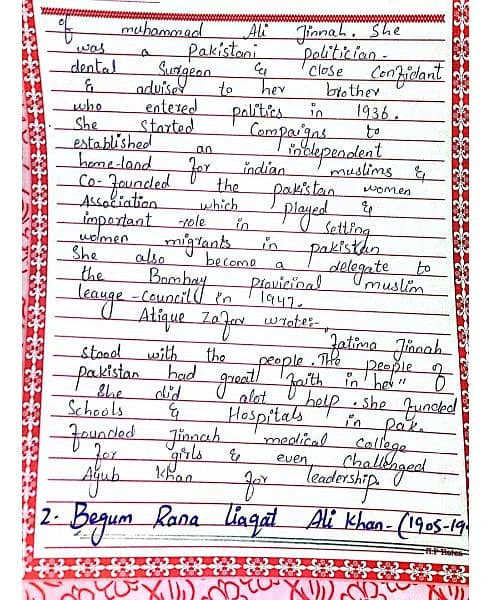 of muhammad Ali Jinnah. She
was a Pakistani politician-
dental Surgeon & close Confidant
& adviser to her brother
who entered politics in 1936.
She Started Compaigns to
established an independent
home-land for indian muslims &
Co-founded the pakistan women
Association which played &
important role in Setting
women migrants in pakistan
She also become a delegate to
the Bombay Provicinal muslim
leauge-Council in 1947.
Atique Zafar wrote:-
"Fatima Jinnah
stood with the people. The people of
Pakistan had great faith in her"
She did alot help. she funded
Schools & Hospitals in Pak.
founded Jinnah medical College
for girls & even Challenged
Ayub Khan for leadership.
2. Begum Rana liaqat Ali Khan-(1905-19